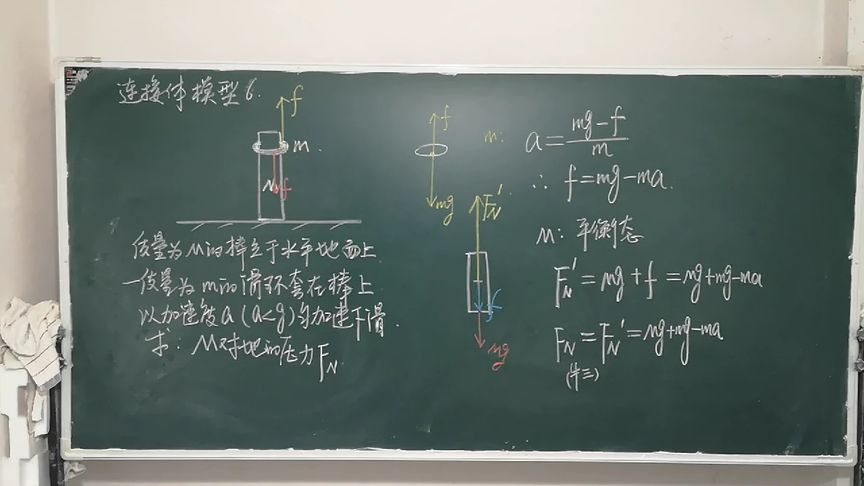 连接体模型6.
f
m.
M
f
质量为M的棒立于水平地面上
一质量为m的滑环套在棒上
以加速度a(a<g)匀加速下滑.
求:M对地的压力F_N
f
mg
F_N'
f
Mg
m: a=\frac{mg-f}{m}
∴ f=mg-ma.
M: 平衡态
F_N'=Mg+f=Mg+mg-ma
F_N=F_N'=Mg+mg-ma
(牛三)